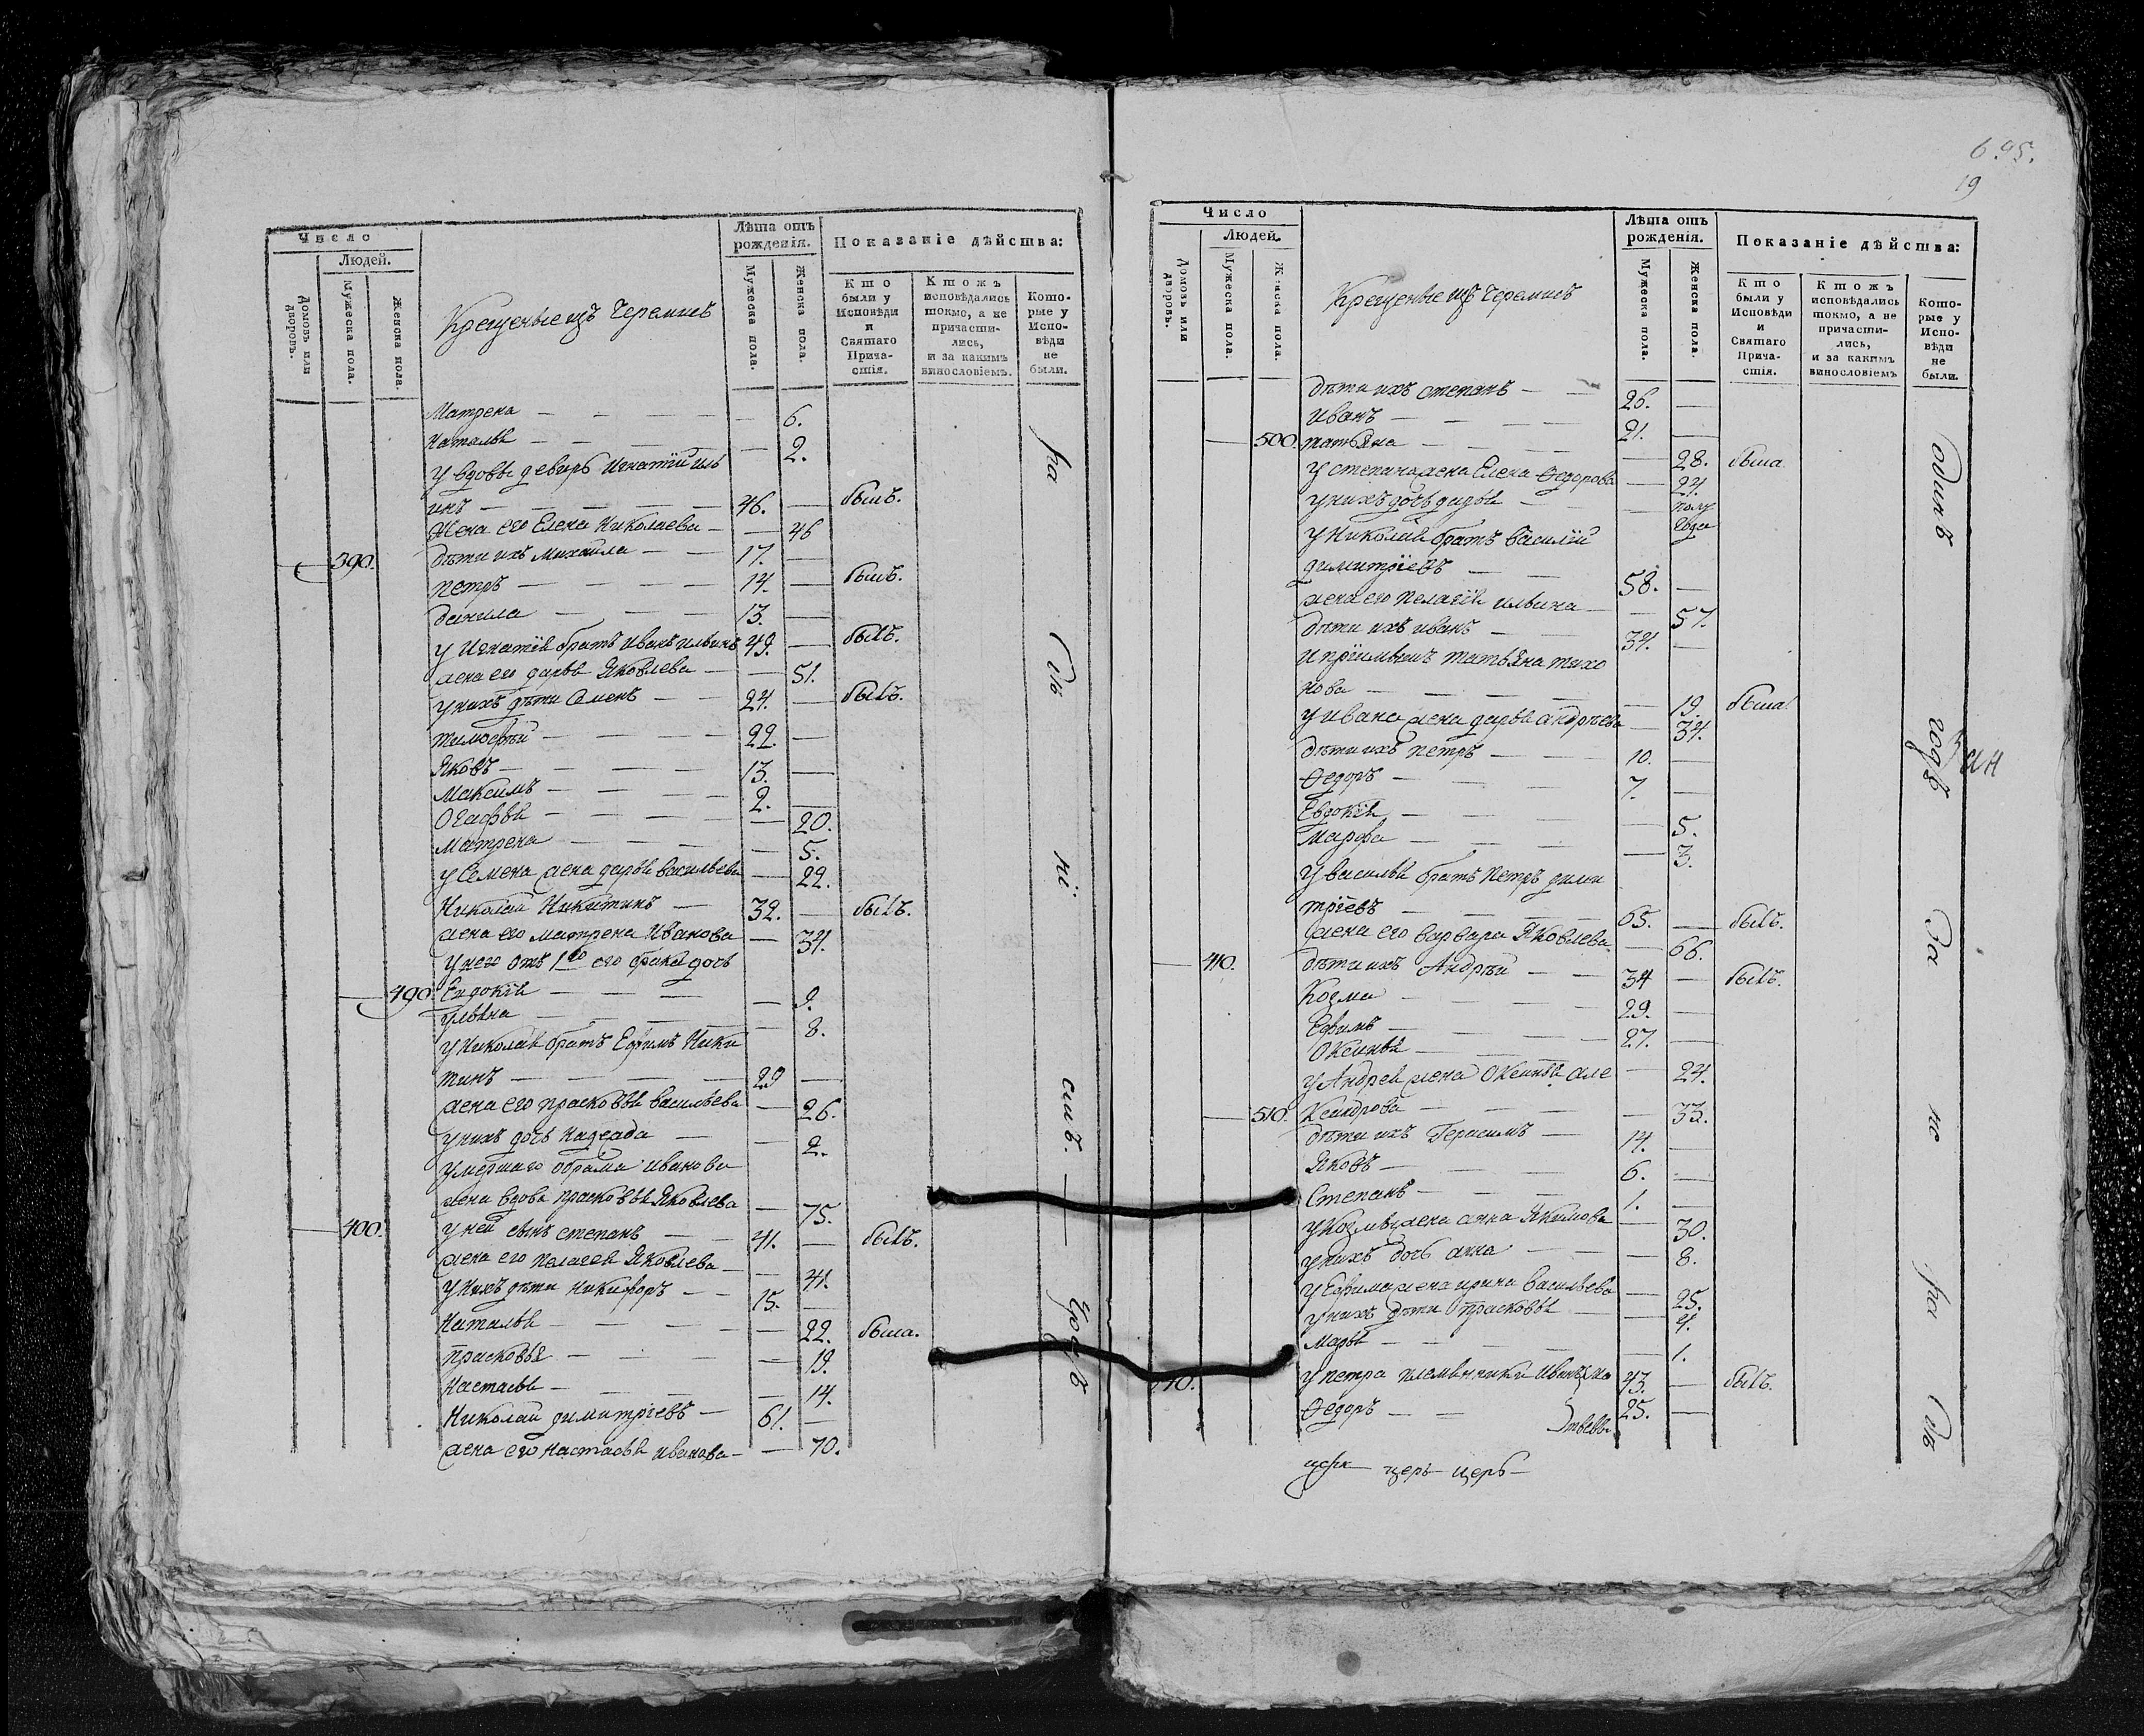 Число
Людей.
Домовъ или дворовъ.
Мужеска пола.
Женска пола.
Крещеные изъ Черемисъ
Лѣта отъ рожденія.
Мужеска пола.
Женска пола.
Показаніе дѣйства:
Кто были у Исповѣди и Святаго Причастія.
Ктожъ исповѣдались токмо, а не причастились, и за какимъ винословіемъ.
Которые у Исповѣди не были.
Матрена — 6.
Наталья — 2.
У вдовы деверь Игнатій Иль
инъ — 46. — былъ.
Жена его Елена Николаева — 46
390. дѣти ихъ Михаила — 17.
Петръ — 14. — былъ.
Данила — 13.
У Игнатія братъ Иванъ Ильинъ 49. — былъ.
жена его дарья Яковлева — 51.
У нихъ дѣти Семенъ — 24. — былъ.
Тимофѣй — 22.
Яковъ — 13.
Максимъ — 2.
Огафья — 20.
Матрена — 5.
У Семена жена дарья Васильева — 22.
Николай Никитинъ — 32. — былъ.
жена его матрена Иванова — 34.
У него отъ 1го его брака дочь
490. Евдокія — 9.
Ульяна — 8.
У Николая братъ Ефимъ Ники
тинъ — 29 —
жена его прасковья Васильева — 26.
У нихъ дочь Надежда — 2.
Умершаго Обрама Иванова
жена вдова прасковья Яковлева — 75.
400. У ней сынъ степанъ — 41. — былъ.
жена его пелагея Яковлева — 41.
У нихъ дѣти Никифоръ — 15. —
Наталья — 22. была.
Прасковья — 19.
Настасья — 14.
Николай димитріевъ — 61. —
жена его настасья иванова — 70.
695.
19
Число
Людей.
Домовъ или дворовъ.
Мужеска пола.
Женска пола.
Крещеные изъ Черемисъ
Лѣта отъ рожденія.
Мужеска пола.
Женска пола.
Показаніе дѣйства:
Кто были у Исповѣди и Святаго Причастія.
Ктожъ исповѣдались токмо, а не причастились, и за какимъ винословіемъ
Которые у Исповѣди не были.
дѣти ихъ степанъ — 26. —
Иванъ — 21. —
500. татьяна — 28. была
У степана жена Елена Федорова — 24.
У нихъ дочь дарья — полу
года
У Николая братъ Василій
димитріевъ — 58. —
жена его пелагія ильина — 57.
дѣти ихъ иванъ — 34. —
И пріимышъ татьяна тихо
нова — 19. была
У ивана жена дарья андрѣева — 34.
дѣти ихъ петръ — 10. —
Федоръ — 7. —
Евдокія — 5.
Марфа — 3.
У василья братъ Петръ дими
тріевъ — 65. — былъ.
жена его варвара Яковлева — 66.
410. дѣти ихъ Андрѣй — 34 — былъ.
Козма — 29. —
Ефимъ — 27. —
Оксинья — 24.
У Андрея жена Оксинья але
510. Ксандрова — 33.
дѣти ихъ Герасимъ — 14. —
Яковъ — 6. —
Степанъ — 1. —
У Козмы жена анна Якимова — 30.
У нихъ дочь анна — 8.
У Ефима жена ирина васильева — 25.
У нихъ дѣти Прасковья — 4.
Марья — 1.
У петра племянники Иванъ Ма 43. — былъ.
Федоръ — твеевы 25. —
одинъ
годъ
За
не